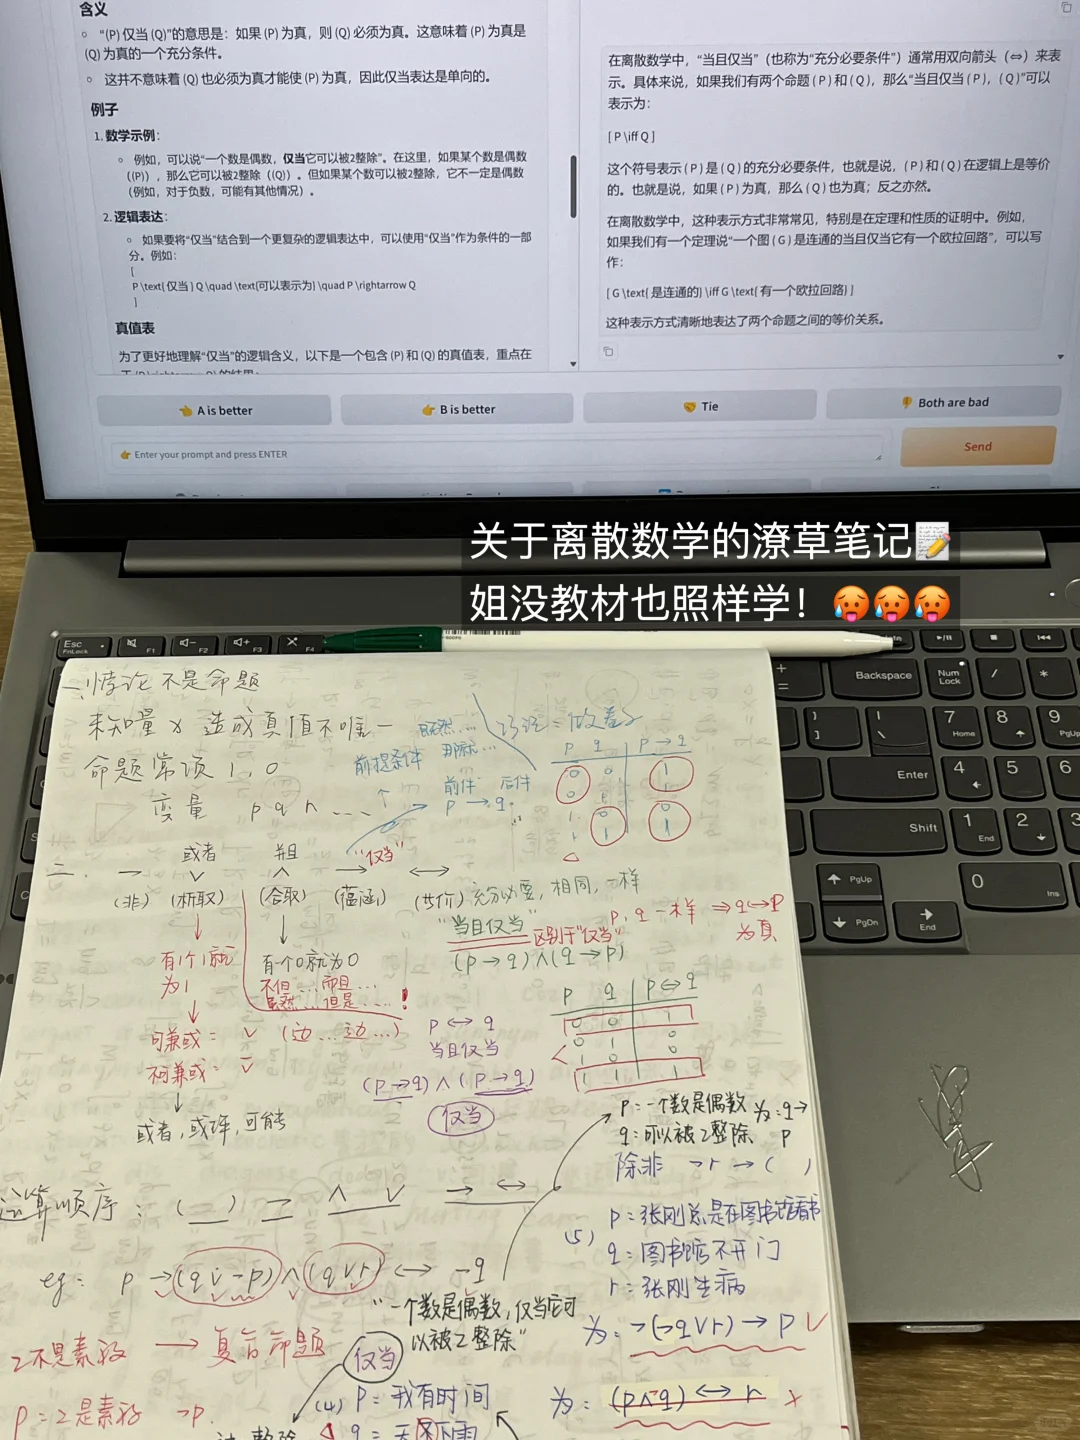 含义
“(P) 仅当 (Q)”的意思是：如果 (P) 为真，则 (Q) 必须为真。这意味着 (P) 为真是
(Q) 为真的一个充分条件。
这并不意味着 (Q) 也必须为真才能使 (P) 为真，因此仅当表达是单向的。
例子
1. 数学示例：
例如，可以说“一个数是偶数，仅当它可以被2整除”。在这里，如果某个数是偶数
((P))，那么它可以被2整除（(Q)）。但如果某个数可以被2整除，它不一定是偶数
（例如，对于负数，可能有其他情况）。
2. 逻辑表达：
如果要将“仅当”结合到一个更复杂的逻辑表达中，可以使用“仅当”作为条件的一部
分。例如：
[
P \text{ 仅当 } Q \quad \text{可以表示为} \quad P \rightarrow Q
]
真值表
为了更好地理解“仅当”的逻辑含义，以下是一个包含 (P) 和 (Q) 的真值表，重点在
在离散数学中，“当且仅当”（也称为“充分必要条件”）通常用双向箭头（⇔）来表
示。具体来说，如果我们有两个命题 ( P ) 和 ( Q )，那么“当且仅当 ( P )，( Q )”可以
表示为：
[ P \iff Q ]
这个符号表示 ( P ) 是 ( Q ) 的充分必要条件，也就是说，( P ) 和 ( Q ) 在逻辑上是等价
的。也就是说，如果 ( P ) 为真，那么 ( Q ) 也为真；反之亦然。
在离散数学中，这种表示方式非常常见，特别是在定理和性质的证明中。例如，
如果我们有一个定理说“一个图 ( G ) 是连通的当且仅当它有一个欧拉回路”，可以写
作：
[ G \text{ 是连通的} \iff G \text{ 有一个欧拉回路} ]
这种表示方式清晰地表达了两个命题之间的等价关系。
👈 A is better
👉 B is better
🤝 Tie
👎 Both are bad
👉 Enter your prompt and press ENTER
Send
关于离散数学的潦草笔记📝
姐没教材也照样学！🥵🥵🥵
Esc
FnLock
F1
F2
F3
F4
Backspace
Num
Lock
/
*
7
Home
8
9
PgUp
Enter
4
5
6
Shift
1
End
2
3
PgUp
PgDn
End
0
Ins
一、悖论不是命题
未知量 x 造成真值不唯一
命题常项 1, 0
变量 p q r ...
既然...
那么...
前提条件
前件 后件
p → q
p q p→q
0 0 1
0 1 1
1 0 0
1 1 1
二.
或者 并且 “仅当”
¬ ∨ ∧ → ↔
(非) (析取) (合取) (蕴涵) (等价) 充分必要, 相同, 一样
“当且仅当” 区别于“仅当”
(p→q)∧(q→p)
p, q 一样 ⇒ q↔p
为真
有1个1就
为1
有个0就为0
不但... 而且...
虽然... 但是... !
可兼或： ∨ (边... 边...)
不可兼或：
或者, 或许, 可能
p ↔ q
当且仅当
(p→q)∧(p→q)
仅当
p q p↔q
0 0 1
0 1 0
1 0 0
1 1 1
p：一个数是偶数 为：q→
q：可以被2整除 p
除非 ¬r → ( )
运算顺序：( ) ¬ ∧ ∨ → ↔
eg： p → (q ∨ ¬p) ∧ (q ∨ r) ↔ ¬q
“一个数是偶数, 仅当它可
以被2整除”
仅当
(5) p：张刚总是在图书馆看书
q：图书馆不开门
r：张刚生病
为：¬(¬q∨r) → p √
为：(p∧¬q) ↔ r ×
2不是素数 → 复合命题
p = 2是素数 ¬p.
(4) p = 我有时间
q = 天不下雨